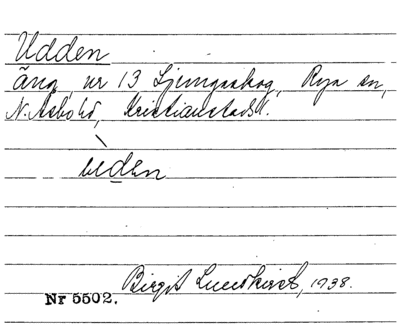 Udden
äng, nr 13 Ljungaskog, Rya sn,
N. Åsbo hd, Kristianstads l.
uden
Birgit Lundkvist, 1938.
Nr 5502.